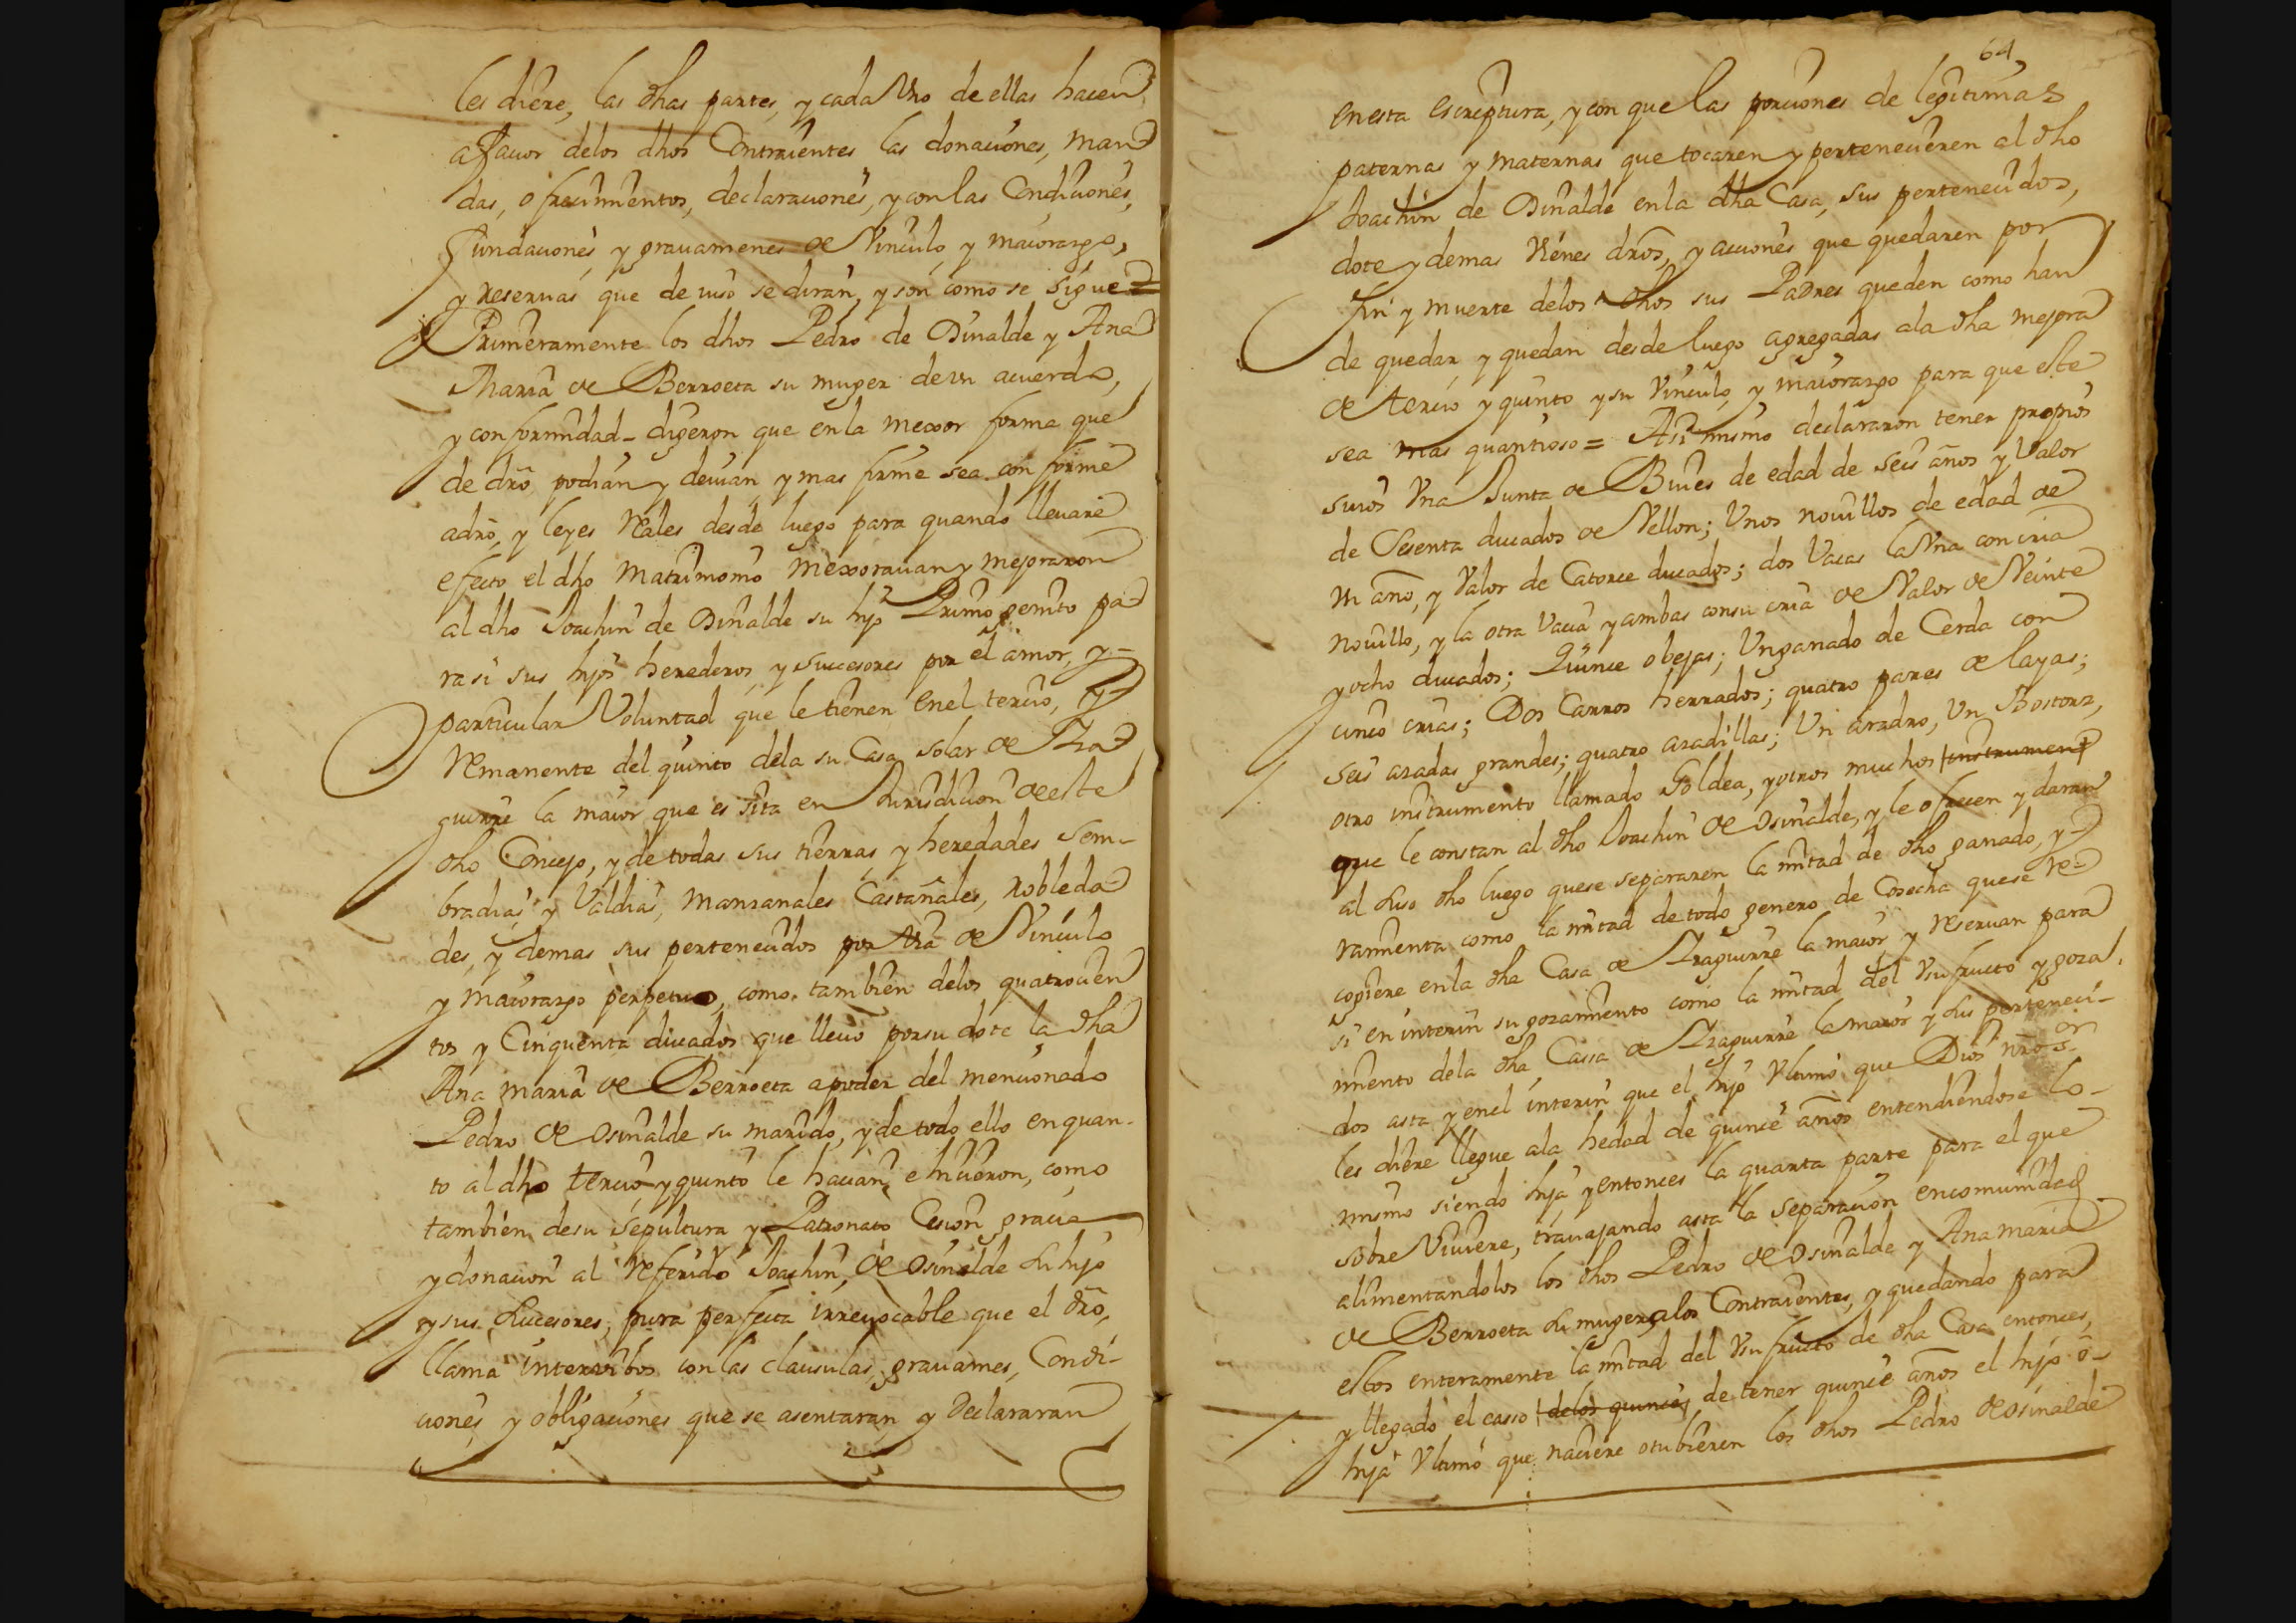 les diere, las dhas partes, y cada Uno de ellas hacen
a favor delos dhos Contraientes las donaciones, man
das, ofrecimientos, declaraciones, y con las Condiciones,
fundaciones y gravamenes de Vinculo y maiorazgo,
y reservas que de iuso se diran, y son como se sigue =
Primeramente los dhos Pedro de Osinalde y Ana
Maria de Berroeta su muger de un acuerdo,
y conformidad digeron que en la mexor forma que
de dro podian y devian y mas firme sea conforme
adro, y leyes Reales desde luego para quando llevare
efecto el dho Matrimonio mexoravan y mejoraron
al dho Joachin de Osinalde su hijo Primogenito pa
rasi sus hijos herederos y succesores por el amor, y
particular Voluntad que le tienen enel tercio, y
Remanente del quinto dela su Casa solar de Yra
guirre la maior que es sita en Jurisdicion de este
dho Concejo, y de todas sus tierras y heredades sem-
bradias y Valdias, manzanales Castañales, robleda
des, y demas sus pertenecidos por Via de Vinculo
y maiorazgo perpetuo, como tambien delos quatrocien
tos y Cinquenta ducados que llevo por su dote la dha
Ana maria de Berroeta apoder del mencionado
Pedro de Osinalde su marido, y de todo ello en quan-
to al dho tercio y quinto le hacian, e hicieron, como
tambien de su sepultura y Patronato Cesion gracia
y donacion al referido Joachin de Osinalde su hijo
y sus sucesores, pura perfecta irrevocable que el dro,
llama intervibos con las clausulas, gravames, Condi-
ciones y obligaciones que se asentaran y declararan
64
en esta escriptura, y con que las porciones de legitimas
paternas y maternas que tocaren y pertenecieren al dho
Joachin de Osinalde en la dha Casa, sus pertenecidos,
dote y demas Vienes dros, y acciones que quedaren por
fin y muerte delos dhos sus Padres queden como han
de quedar y quedan desde luego agregadas ala dha mejora
de tercio y quinto y su Vinculo, y maiorazgo para que este
sea mas quantioso = Asi mismo declararon tener propios
suios Una Junta de Bueies de edad de seis años y Valor
de Sesenta ducados de Vellon; Unos novillos de edad de
un año, y Valor de Catorce ducados; dos Vacas la Una con cria
novillo, y la otra Vacia y ambas con su cria de Valor de Veinte
y ocho ducados; Quince obejas; Un ganado de Cerda con
cinco crias; Dos Carros herrados; quatro pares de layas;
seis azadas grandes; quatro azadillas; Un arado, Un Bostorz,
otro instrumento llamado Goldea, y otros muchos instrument
que le constan al dho Joachin de Osinalde, y le ofrecen y daran
al suso dho luego que se separaren la mitad de dho ganado, y
rramienta como la mitad de todo genero de Cosecha que se re
cogiere en la dha Casa de Yraguirre la maior y reservan para
si en interin su gozamiento como la mitad del Usufructo y goza
miento dela dha Cassa de Yraguirre la maior y sus perteneci-
dos asta y enel interin que el hijo Ultimo que Dios nro Sor
les diere llegue ala hedad de quince años entendiendose lo
mismo siendo hija, y entonces la quarta parte para el que
sobre Viviere, travajando asta la separacion en comunidad
alimentandolos los dhos Pedro de Osinalde y Ana maria
de Berroeta su muger alos Contraientes, y quedando para
estos enteramente la mitad del Usufructo de dha Casa entonces,
y llegado el casso delos quince de tener quince años el hijo o
hija Ultimo que naciere o tubieren los dhos Pedro de Osinalde